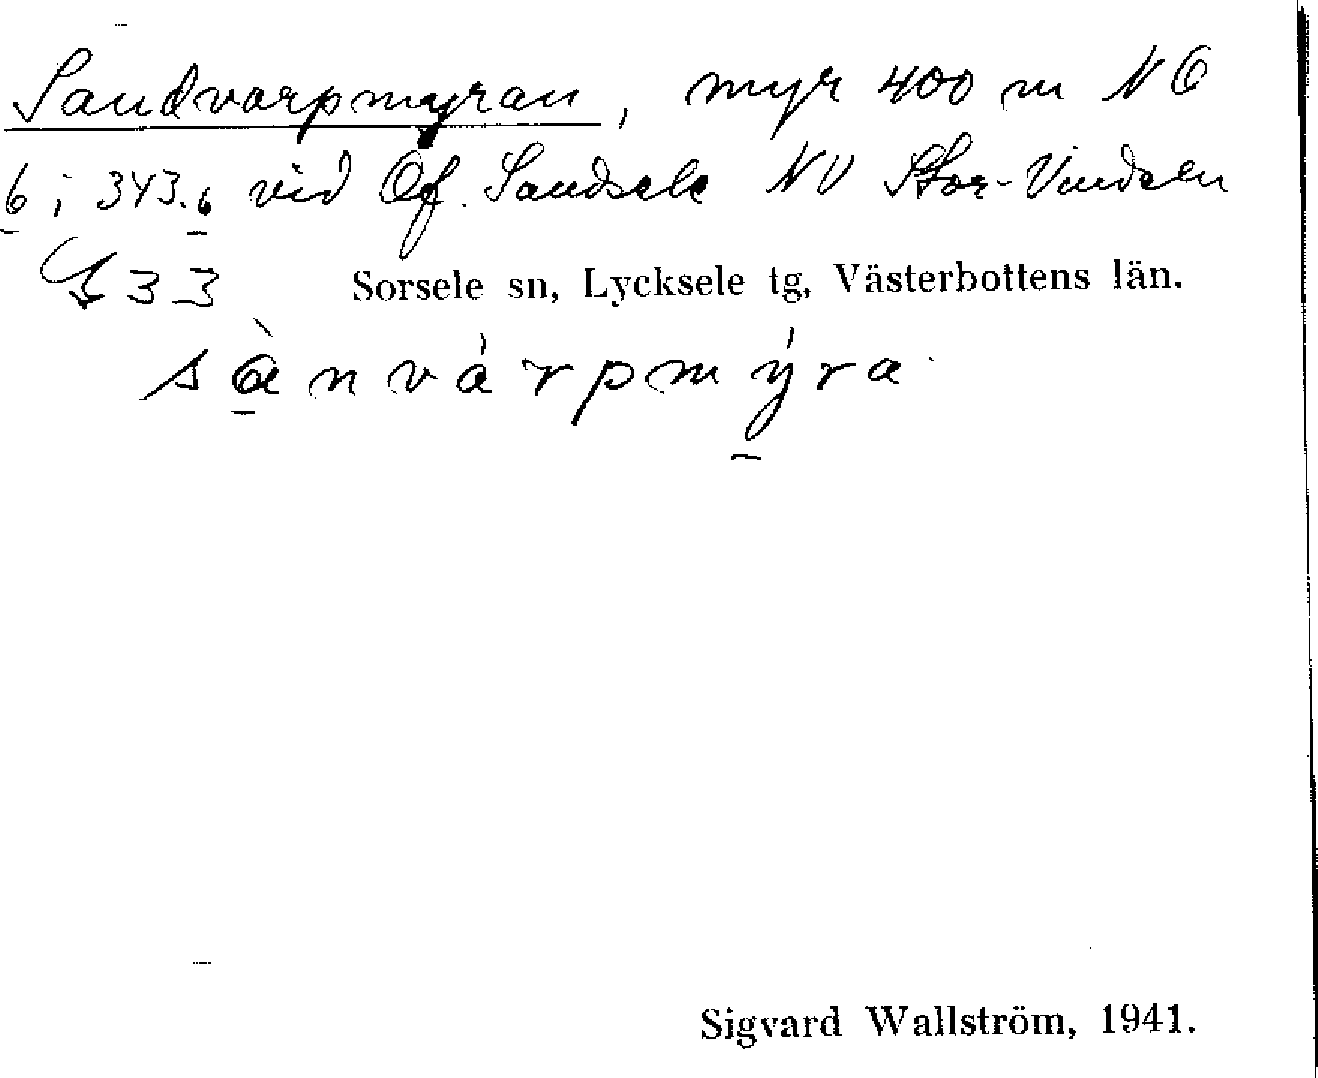 Sandvarpmyran, myr 400 m NO
6; 343.6 vid Öf. Sandsele NV Stor-Vindeln
G 33 Sorsele sn, Lycksele tg, Västerbottens län.
sànvárpmýra
Sigvard Wallström, 1941.